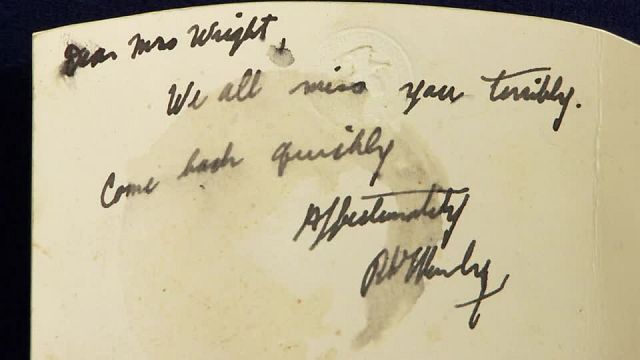 Dear Mrs Wright,
We all miss you terribly.
Come back quickly
Affectionately